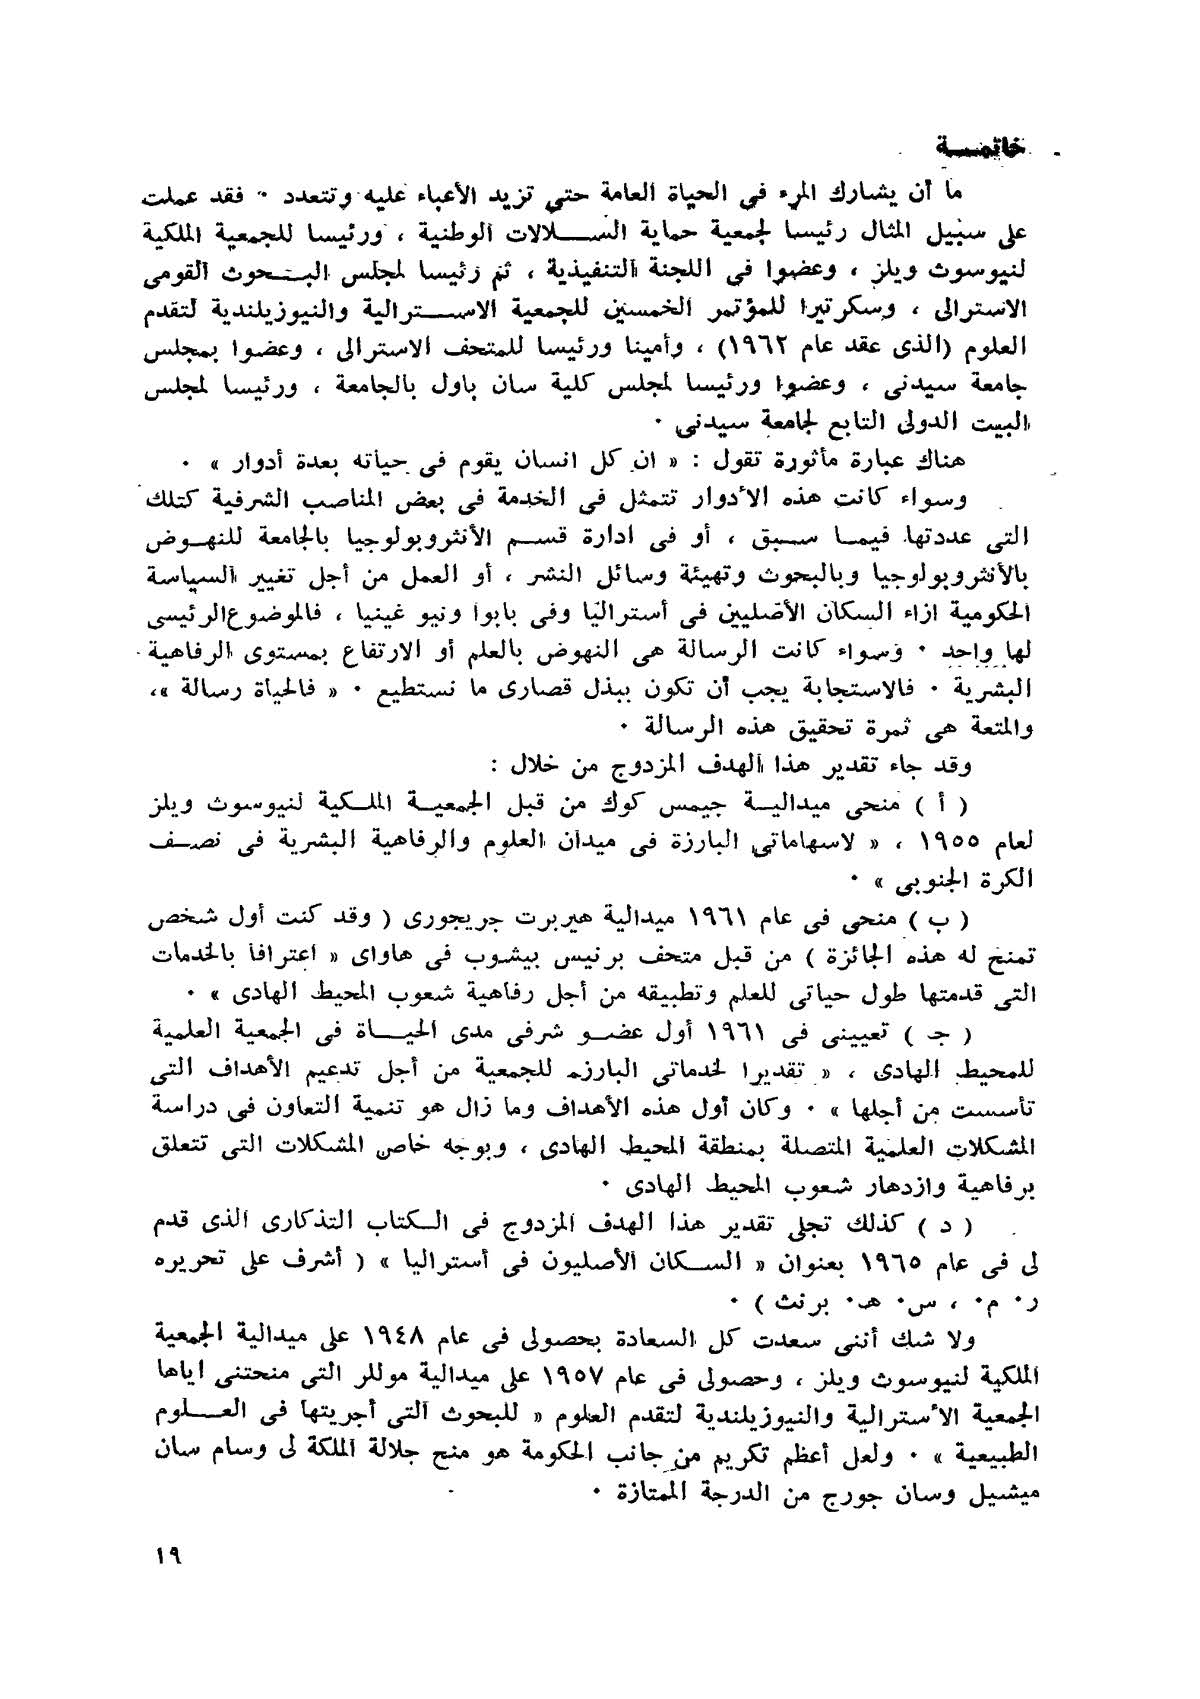 خاتمـــة
ما أن يشارك المرء في الحياة العامة حتى تزيد الأعباء عليه وتتعدد ٠ فقد عملت
على سبيل المثال رئيسا لجمعية حماية الســـلالات الوطنية ، ورئيسا للجمعية الملكية
لنيوسوث ويلز ، وعضوا في اللجنة التنفيذية ، ثم رئيسا لمجلس البـحوث القومى
الاسترالى ، وسكرتيرا للمؤتمر الخمسين للجمعية الاســترالية والنيوزيلندية لتقدم
العلوم (الذى عقد عام ١٩٦٢) ، وأمينا ورئيسا للمتحف الاسترالى ، وعضوا بمجلس
جامعة سيدنى ، وعضوا ورئيسا لمجلس كلية سان باول بالجامعة ، ورئيسا لمجلس
البيت الدولى التابع لجامعة سيدنى ٠
هناك عبارة مأثورة تقول : « ان كل انسان يقوم فى حياته بعدة أدوار » ٠
وسواء كانت هذه الأدوار تتمثل فى الخدمة فى بعض المناصب الشرفية كتلك
التى عددتها فيمـا سـبق ، أو فى ادارة قسـم الأنثروبولوجيا بالجامعة للنهـوض
بالأنثروبولوجيا وبالبحوث وتهيئة وسائل النشر ، أو العمل من أجل تغيير السياسة
الحكومية ازاء السكان الأصليين فى أستراليا وفى بابوا ونيو غينيا ، فالموضوع الرئيسى
لها واحد ٠ وسواء كانت الرسالة هى النهوض بالعلم أو الارتفاع بمستوى الرفاهية
البشرية ٠ فالاستجابة يجب أن تكون ببذل قصارى ما نستطيع ٠ « فالحياة رسالة »،
والمتعة هى ثمرة تحقيق هذه الرسالة ٠
وقد جاء تقدير هذا الهدف المزدوج من خلال :
( أ ) منحى ميداليـة جيمس كوك من قبل الجمعيـة الملـكية لنيوسوث ويلز
لعام ١٩٥٥ ، « لاسهاماتى البارزة فى ميدان العلوم والرفاهية البشرية فى نصـف
الكرة الجنوبى » ٠
( ب ) منحى فى عام ١٩٦١ ميدالية هيربرت جريجورى ( وقد كنت أول شخص
تمنح له هذه الجائزة ) من قبل متحف برنيس بيشوب فى هاواى « اعترافا بالخدمات
التى قدمتها طول حياتى للعلم وتطبيقه من أجل رفاهية شعوب المحيط الهادى » ٠
( جـ ) تعيينى فى ١٩٦١ أول عضـو شرفى مدى الحيـاة فى الجمعية العلمية
للمحيط الهادى ، « تقديرا لخدماتى البارزة للجمعية من أجل تدعيم الأهداف التى
تأسست من أجلها » ٠ وكان أول هذه الأهداف وما زال هو تنمية التعاون فى دراسة
المشكلات العلمية المتصلة بمنطقة المحيط الهادى ، وبوجه خاص المشكلات التى تتعلق
برفاهية وازدهار شعوب المحيط الهادى ٠
( د ) كذلك تجلى تقدير هذا الهدف المزدوج فى الـكتاب التذكارى الذى قدم
لى فى عام ١٩٦٥ بعنوان « السـكان الأصليون فى أستراليا » ( أشرف على تحريره
ر٠ م٠ ، س٠ هـ٠ برنث ) ٠
ولا شك أننى سعدت كل السعادة بحصولى فى عام ١٩٤٨ على ميدالية الجمعية
الملكية لنيوسوث ويلز ، وحصولى فى عام ١٩٥٧ على ميدالية موللر التى منحتنى اياها
الجمعية الأسترالية والنيوزيلندية لتقدم العلوم « للبحوث التى أجريتها فى العـلوم
الطبيعية » ٠ ولعل أعظم تكريم من جانب الحكومة هو منح جلالة الملكة لى وسام سان
ميشيل وسان جورج من الدرجة الممتازة ٠
١٩